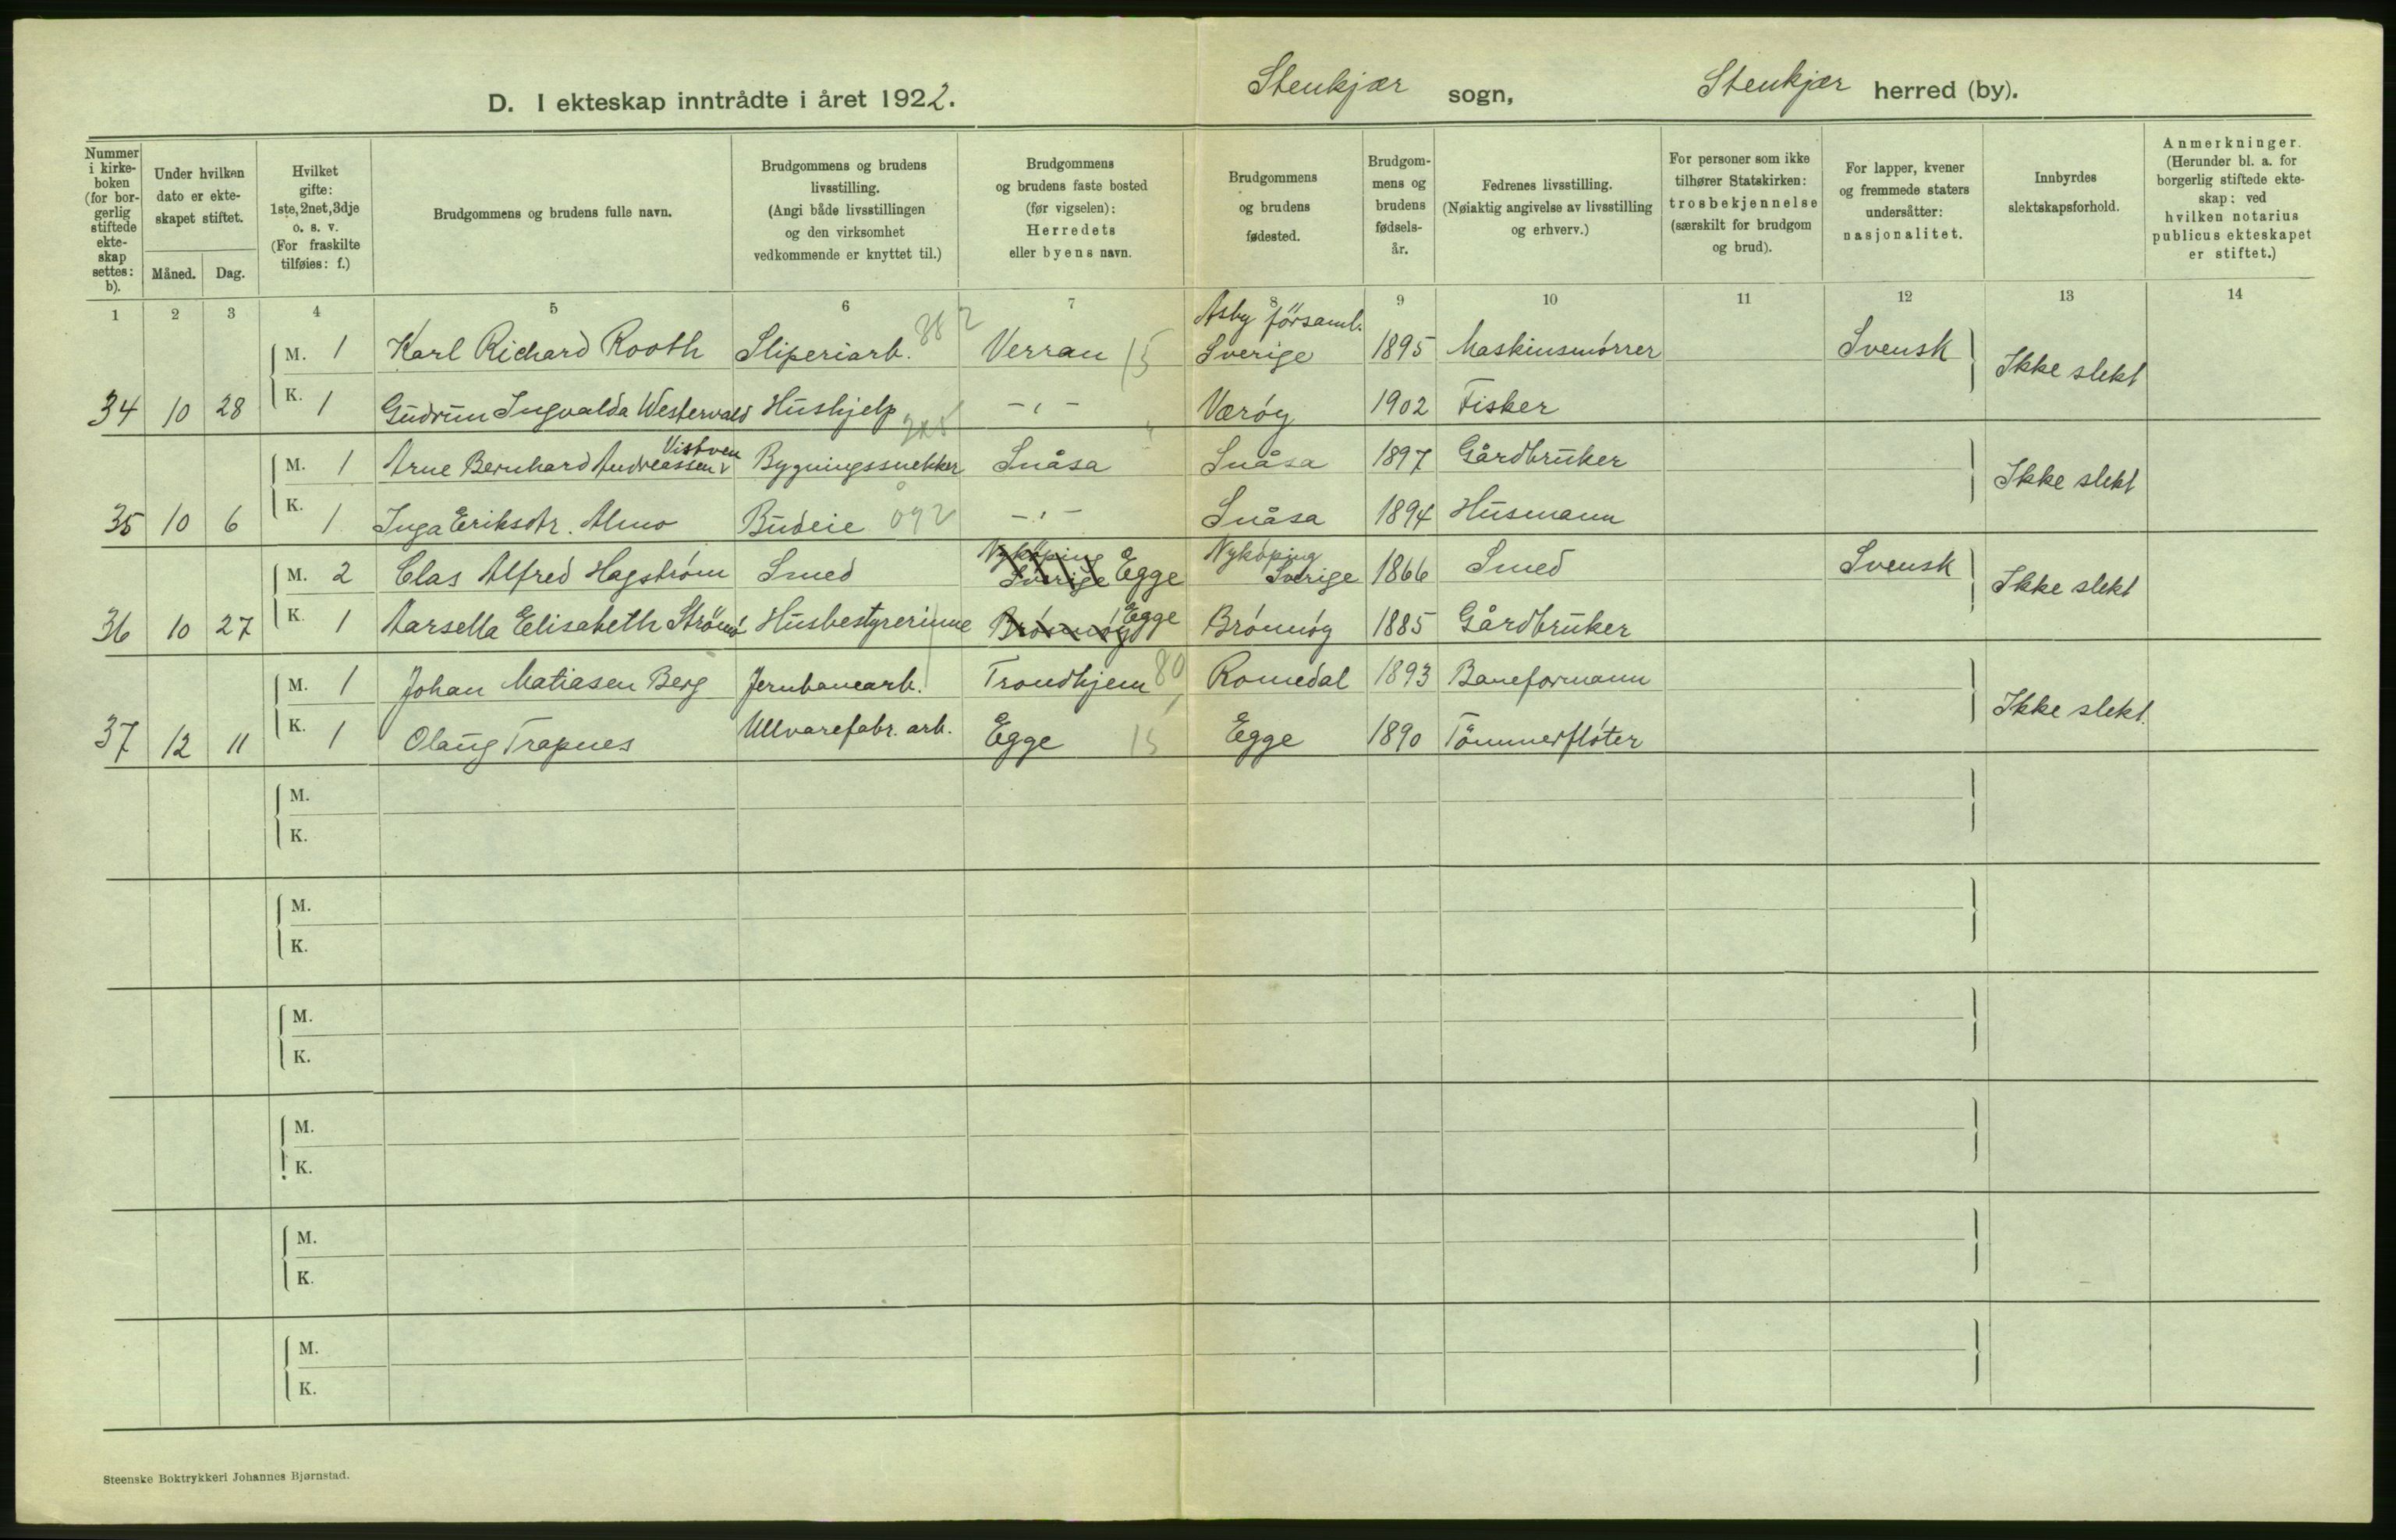 D. I ekteskap inntrådte i året 1922.
Stenkjær sogn,
Stenkjær herred (by).
Nummer i kirkeboken (for borgerlig stiftede ekteskap settes: b).
Under hvilken dato er ekteskapet stiftet.
Måned. Dag.
Hvilket gifte: 1ste, 2net, 3dje o. s. v. (For fraskilte tilføies: f.)
Brudgommens og brudens fulle navn.
Brudgommens og brudens livsstilling. (Angi både livsstillingen og den virksomhet vedkommende er knyttet til.)
Brudgommens og brudens faste bosted (før vigselen): Herredets eller byens navn.
Brudgommens og brudens fødested.
Brudgommens og brudens fødselsår.
Fedrenes livsstilling. (Nøiaktig angivelse av livsstilling og erhverv.)
For personer som ikke tilhører Statskirken: trosbekjennelse (særskilt for brudgom og brud).
For lapper, kvener og fremmede staters undersåtter: nasjonalitet.
Innbyrdes slektskapsforhold.
Anmerkninger. (Herunder bl. a. for borgerlig stiftede ekteskap: ved hvilken notarius publicus ekteskapet er stiftet.)
1 2 3 4 5 6 7 8 9 10 11 12 13 14
M. 1 Karl Richard Rooth Sliperiarb. 882 Verran 15 Asby församl. Sverige 1895 Maskinsmörrer Svensk Ikke slekt
34 10 28 K. 1 Gudrun Ingvalda Westervald Hushjelp -"- Værøy 1902 Fisker
M. 1 Arne Bernhard Andreassen Vistven Bygningssnekker Snåsa Snåsa 1897 Gårdbruker Ikke slekt
35 10 6 K. 1 Inga Eriksdtr. Almo Budeie 092 -"- Snåsa 1894 Husmann
M. 2 Clas Alfred Hagstrøm Smed Nyköping Sverige Egge Nyköping Sverige 1866 Smed Svensk Ikke slekt
36 10 27 K. 1 Aarsella Elisabeth Strömö Husbestyrerinne Brønnøy Egge Brønnøy 1885 Gårdbruker
M. 1 Johan Matiasen Berg Jernbanearb. Trondhjem 80 Romedal 1893 Baneformann Ikke slekt.
37 12 11 K. 1 Olaug Trapnes Ullvarefabr. arb. Egge 15 Egge 1890 Tömmerfløter
M.
K.
M.
K.
M.
K.
M.
K.
M.
K.
M.
K.
Steenske Boktrykkeri Johannes Bjørnstad.